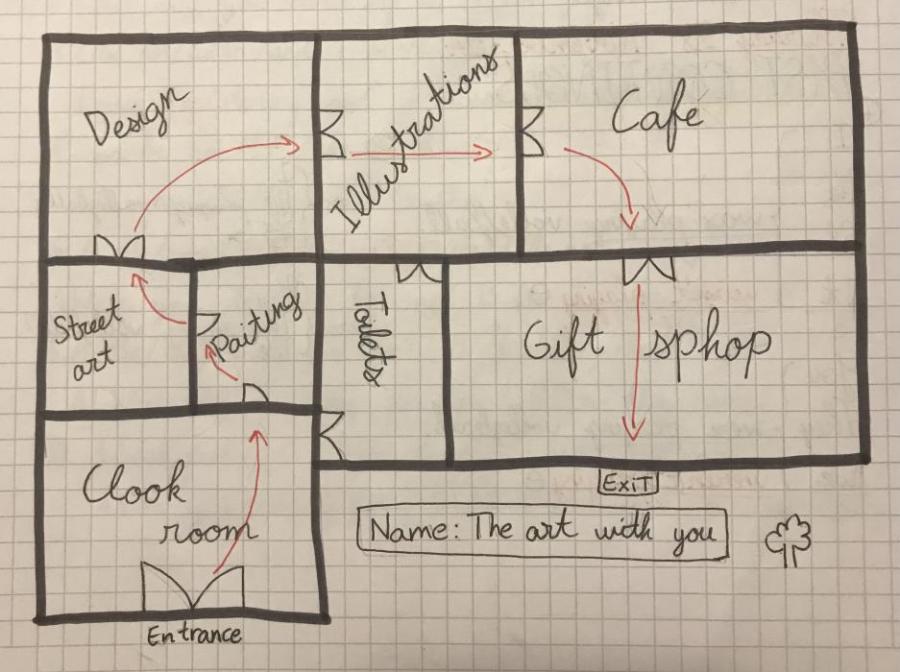 Design
Illustrations
Café
Street
art
Paiting
Toilets
Gift sphop
Clook
room
Entrance
ExiT
Name: The art with you